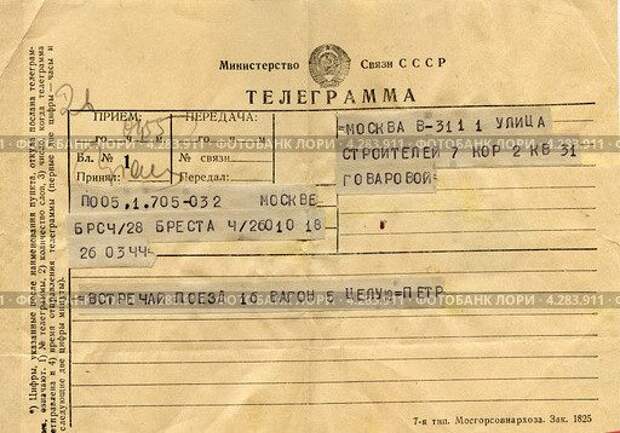 Министерство Связи СССР
ТЕЛЕГРАММА
ПРИЕМ: ПЕРЕДАЧА:
го ч м го ч м
Бл. № 1 № связи
Принял: Передал:
=МОСКВА В-311 1 УЛИЦА
СТРОИТЕЛЕЙ 7 КОР 2 КВ 31
ГОВАРОВОЙ=
П005,1.705-032 МОСКВЕ
БРСЧ/28 БРЕСТА Ч/26010 18
26 0344=
=ВСТРЕЧАЙ ПОЕЗД 16 ВАГОН 5 ЦЕЛУЮ=ПЕТР
*) Цифры, указанные после наименования пункта, откуда послана телеграм-
ма, означают: 1) № телеграммы, 2) количество слов, 3) число, когда телеграмма
отправлена и 4) время отправления телеграммы (первые две цифры—часы и
следующие две цифры минуты).
7-я тип. Мосгорсовнархоза. Зак. 1825
ФОТОБАНК ЛОРИ · 4.283.911
ФОТОБАНК ЛОРИ · 4.283.911